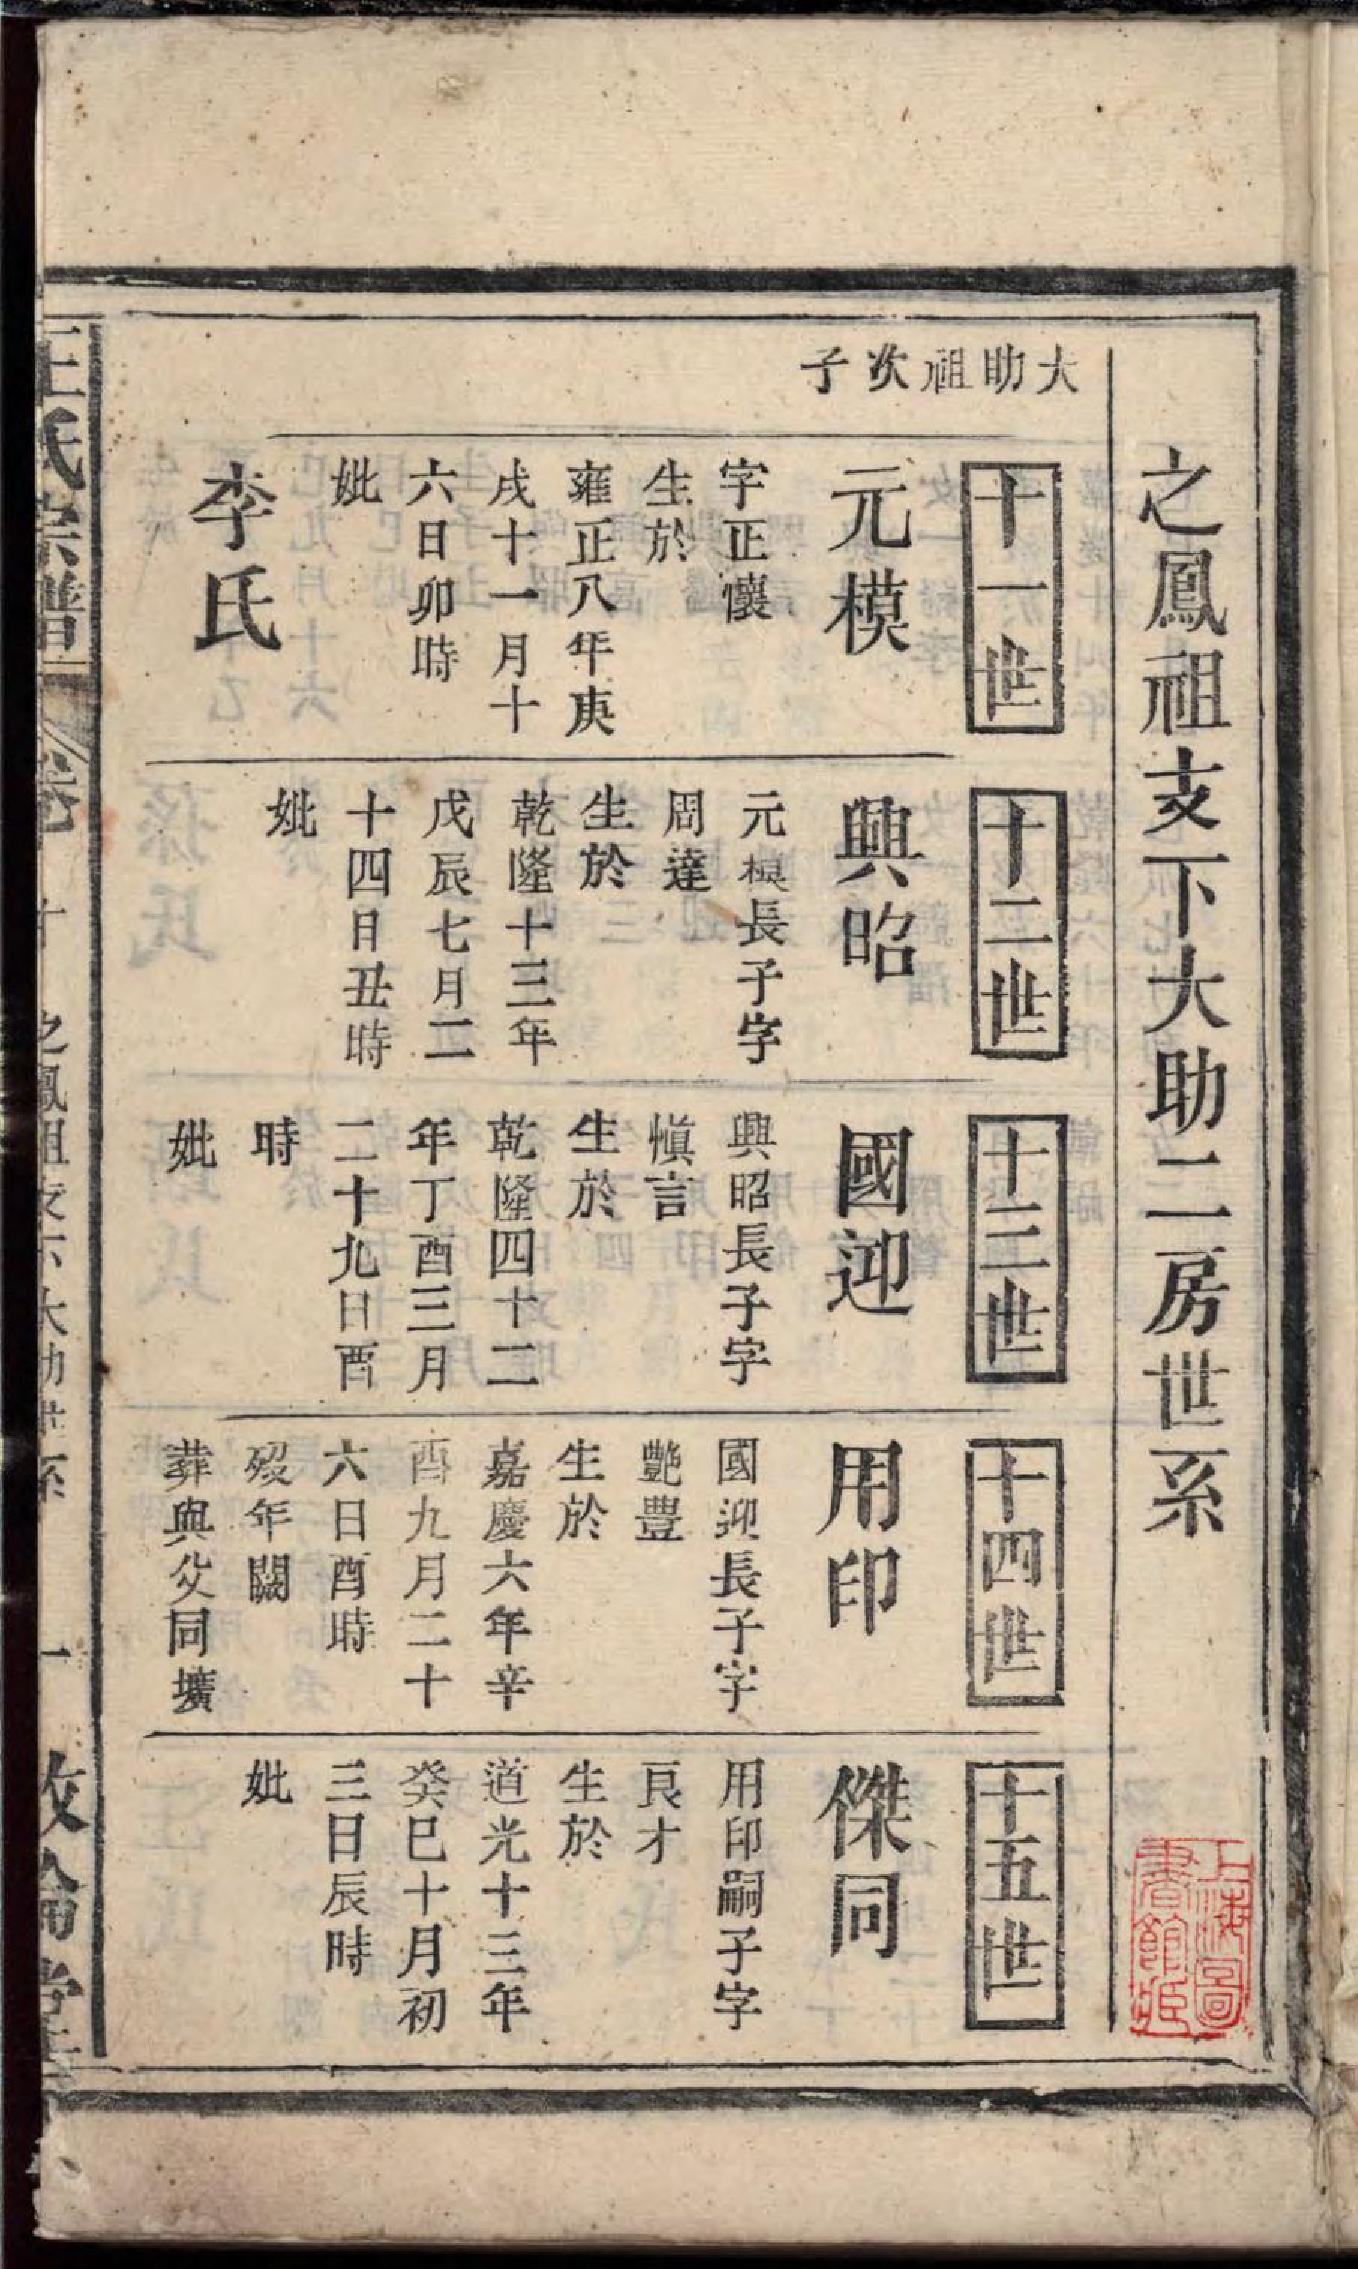 之鳳祖支下大助二房世系
大助祖次子
十一世
元模
字正懷
生於
雍正八年庚
戌十一月十
六日卯時
妣
李氏
十二世
興昭
元模長子字
周達
生於
乾隆十三年
戊辰七月二
十四日丑時
妣
十三世
國迎
興昭長子字
愼言
生於
乾隆四十二
年丁酉三月
二十九日酉
時
妣
十四世
用印
國迎長子字
艷豐
生於
嘉慶六年辛
酉九月二十
六日酉時
歿年闕
葬與父同壙
十五世
傑同
用印嗣子字
良才
生於
道光十三年
癸巳十月初
三日辰時
妣
王氏宗譜
卷十
之鳳祖支下大助世系
一
敦倫堂
上海圖
書館藏